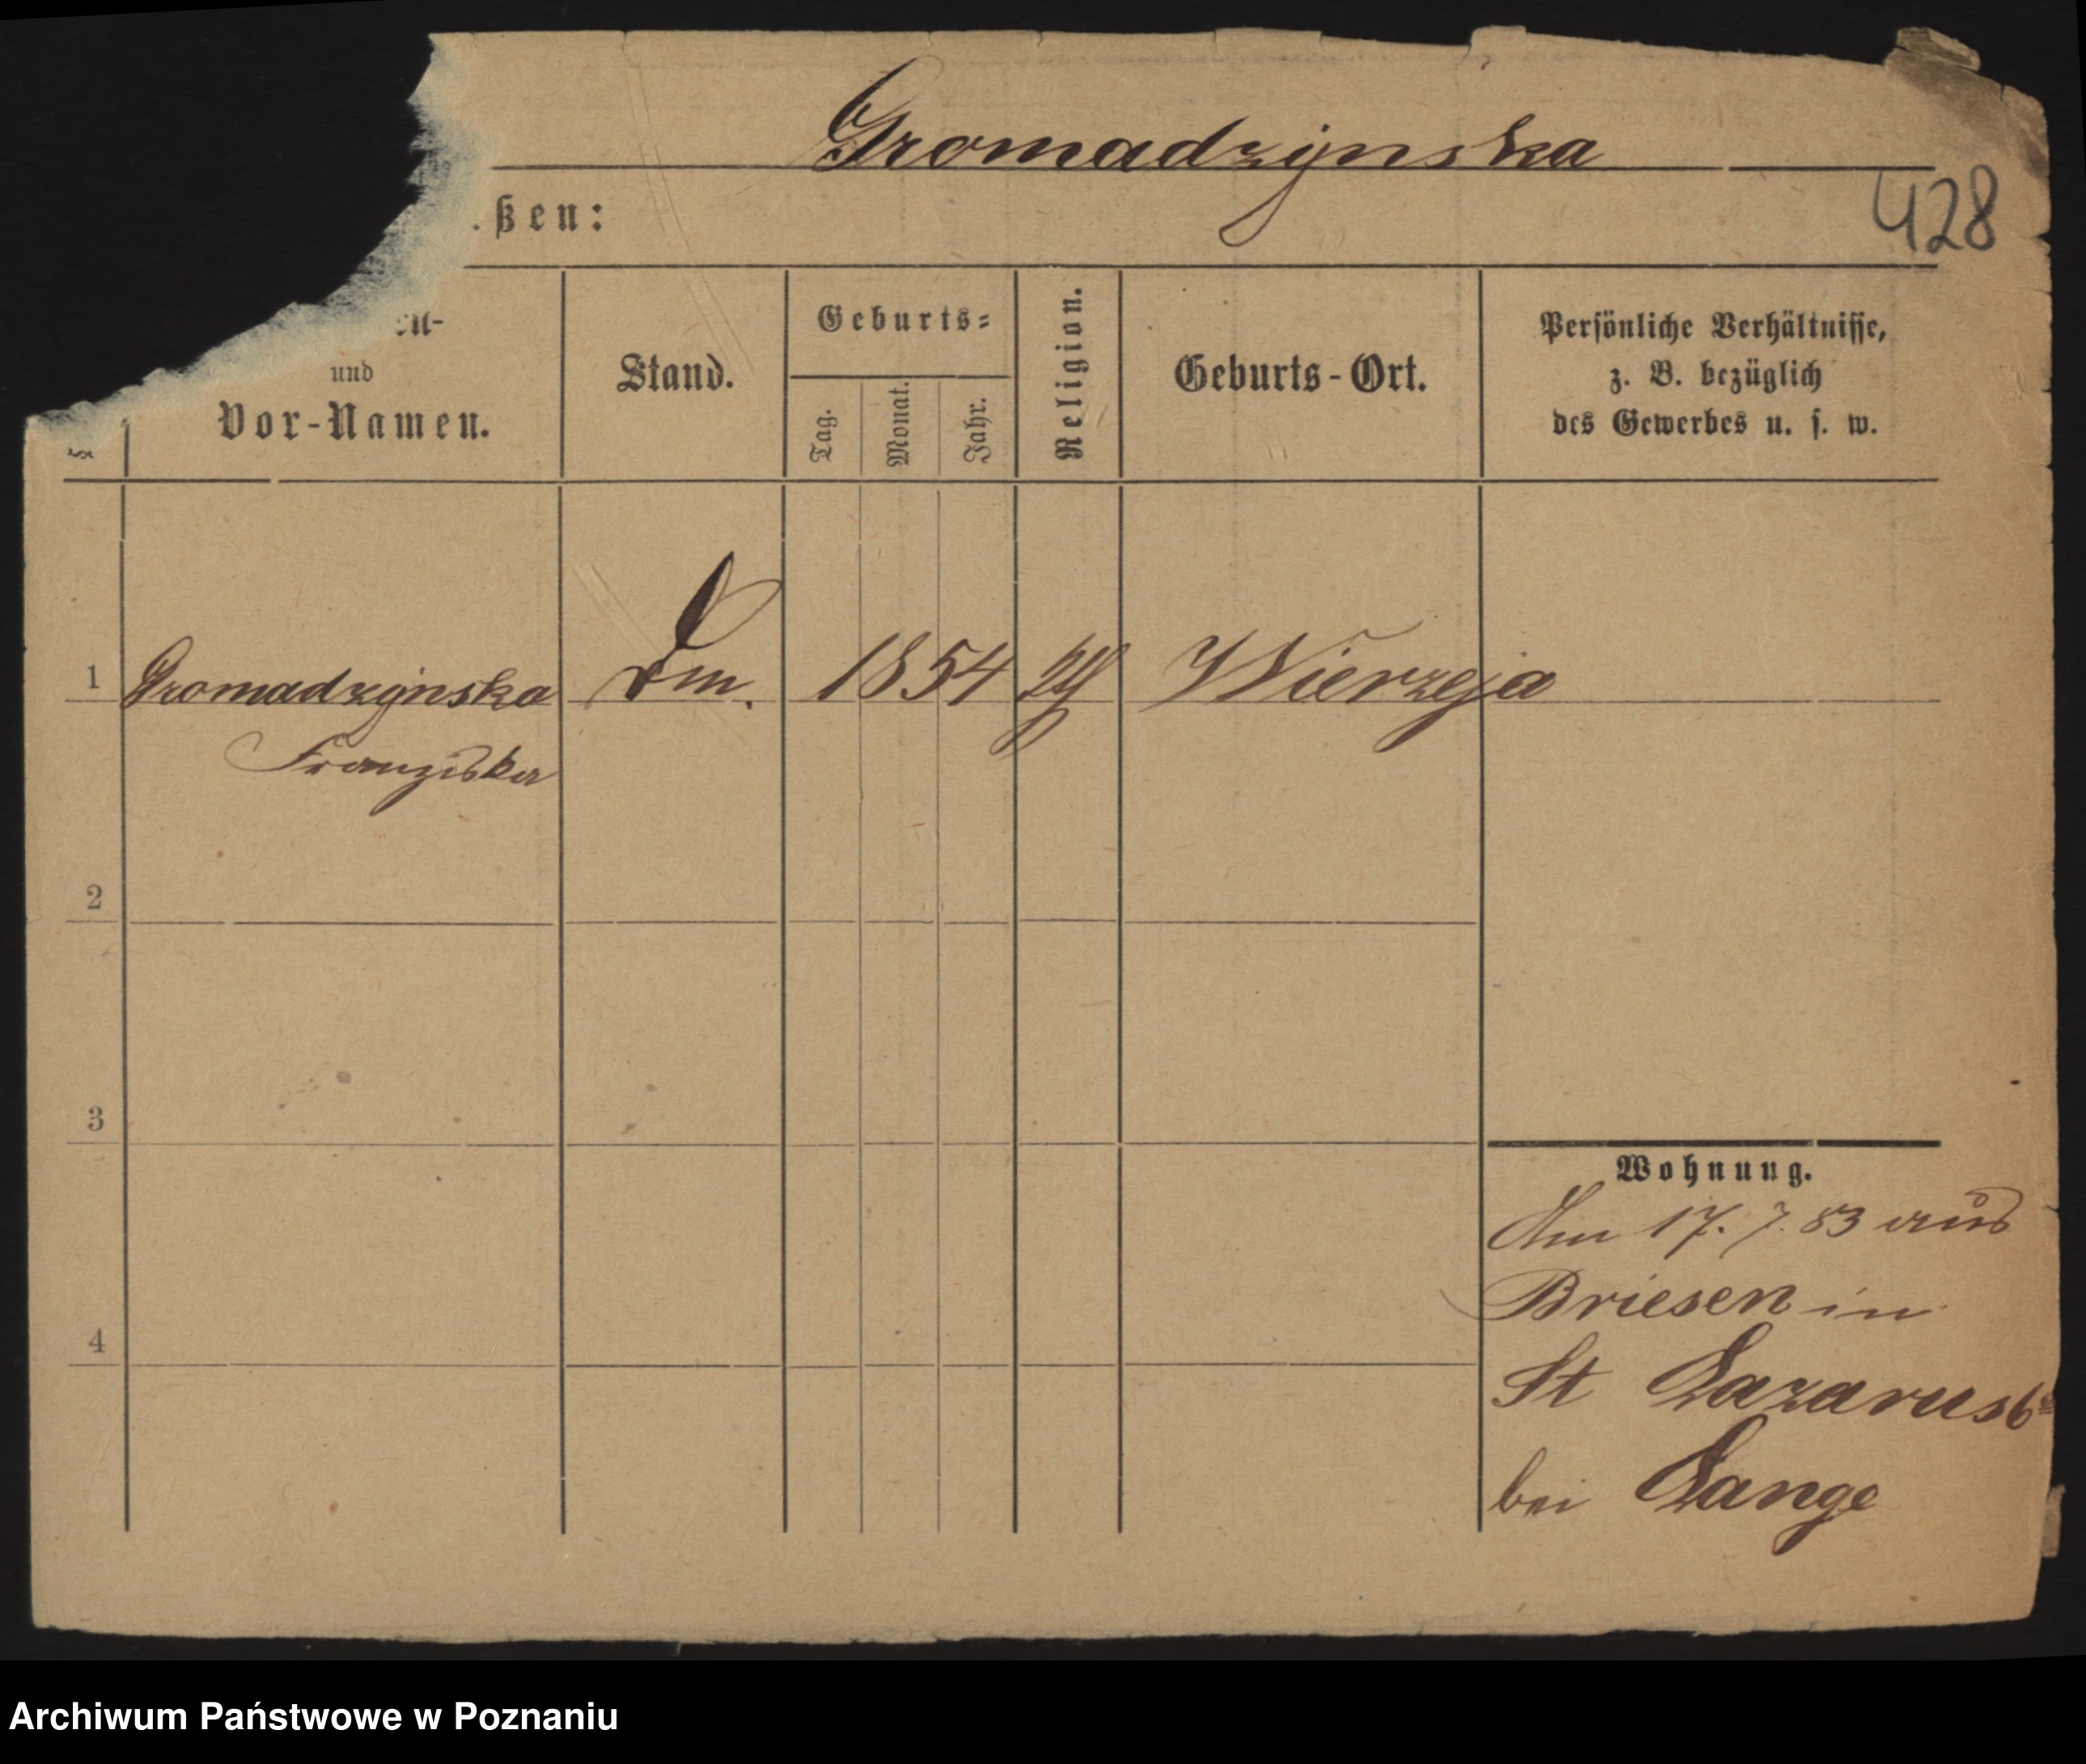 Gromadzynska
428
ßen:
en-
und
Vor-Namen.
Stand.
Geburts=
Tag.
Monat.
Jahr.
Religion.
Geburts-Ort.
Persönliche Verhältnisse,
z. B. bezüglich
des Gewerbes u. s. w.
1 Gromadzynska 1854 Wierzeja
Franziska
2
3
4
Wohnung.
Am 17. 7. 83 aus
Briesen in
St Lazarus 6
bei Lange
Archiwum Państwowe w Poznaniu